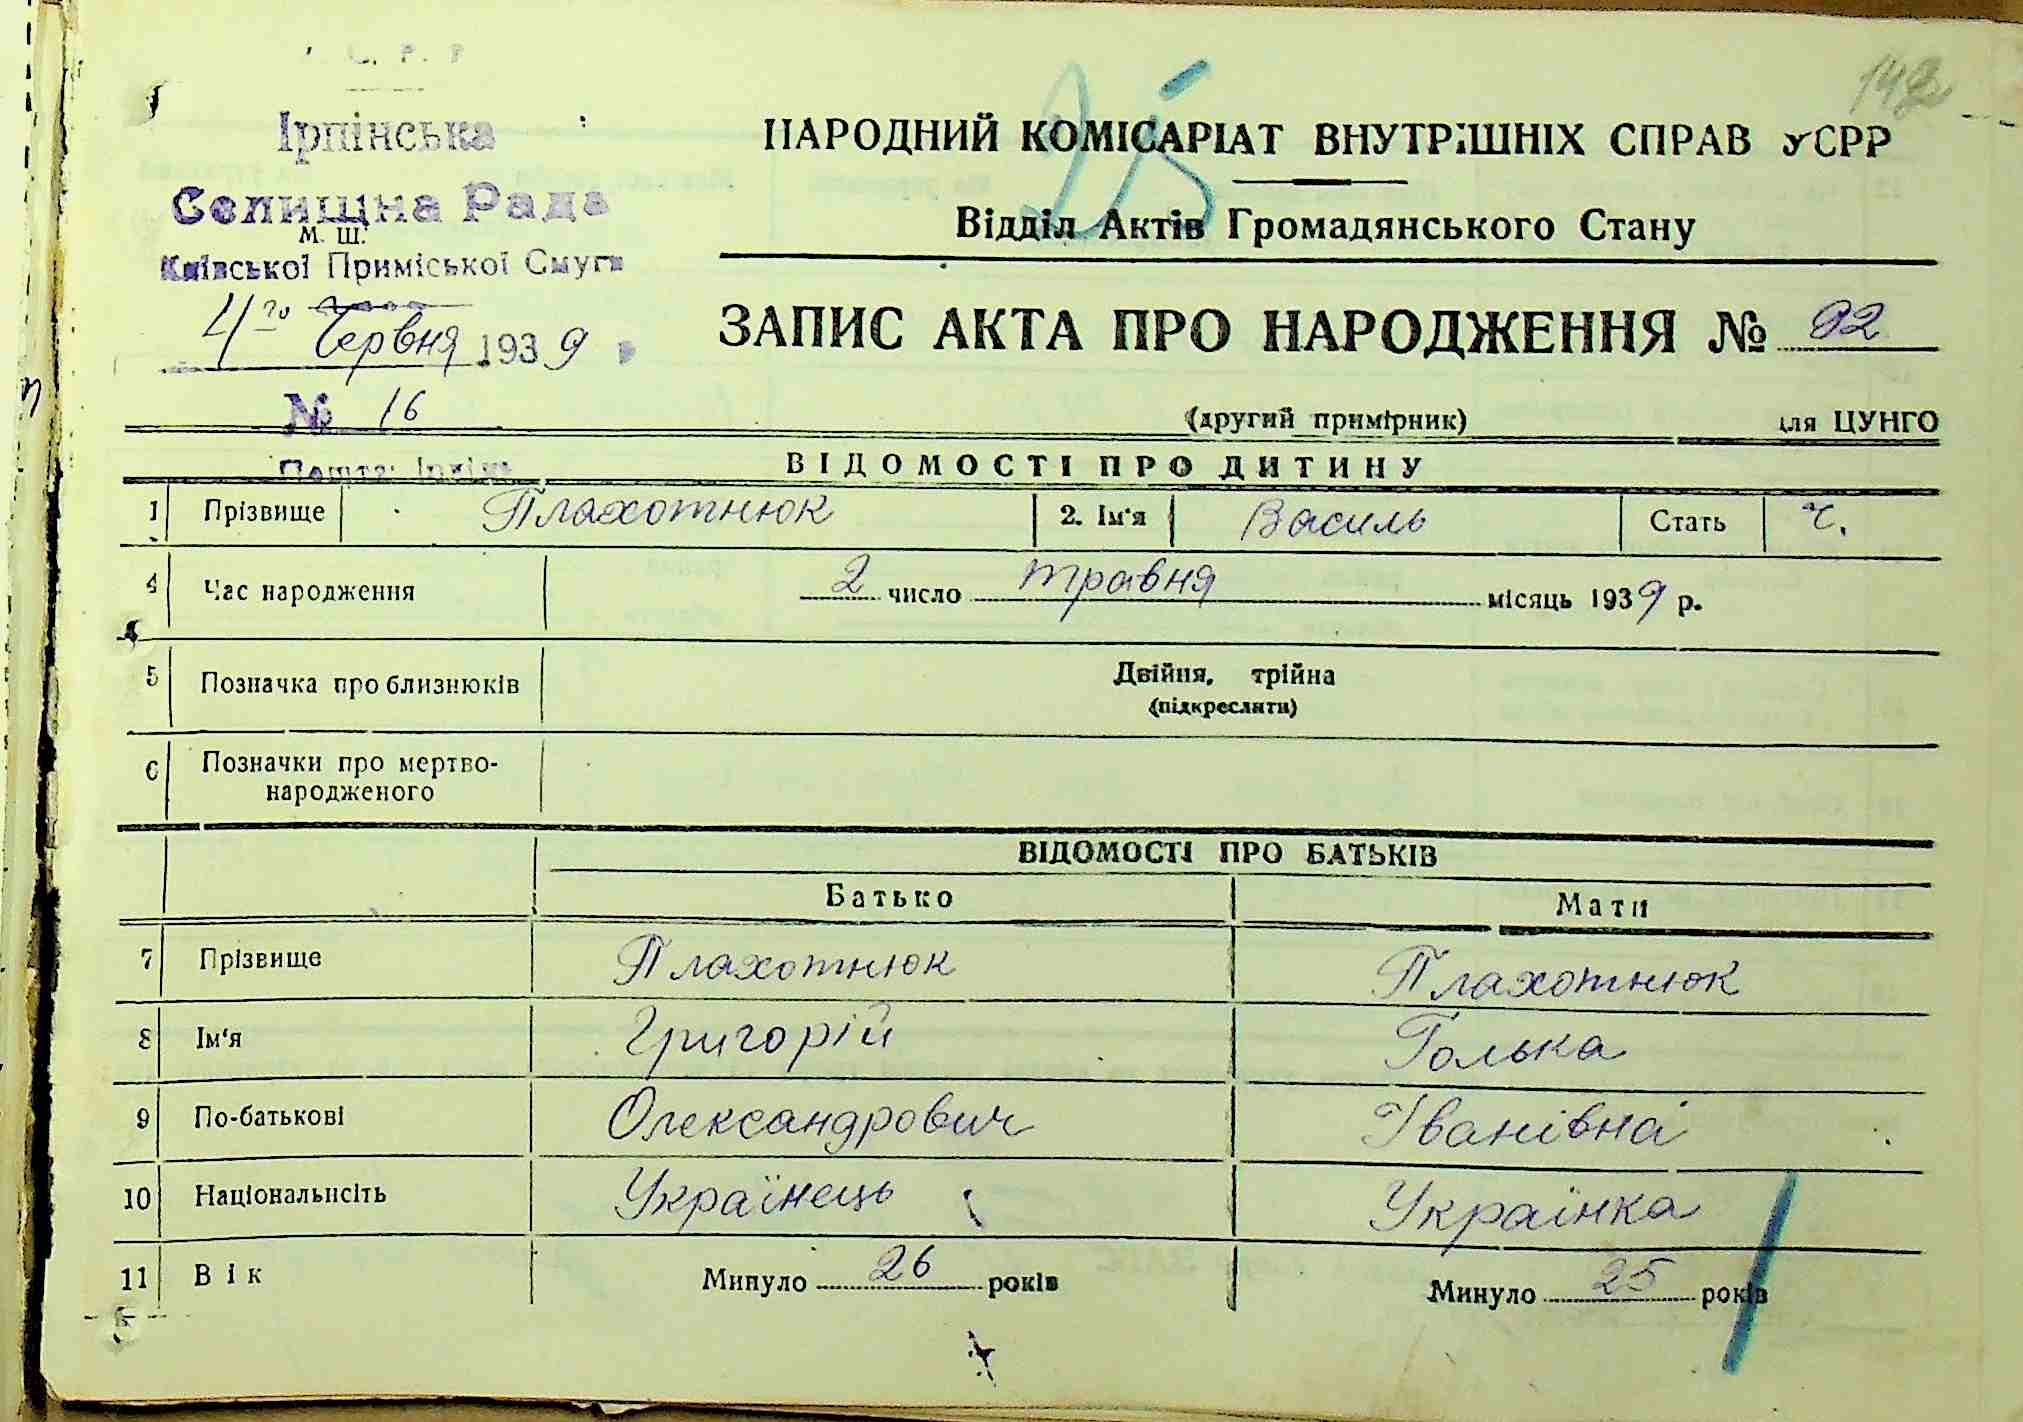 142
Ірпінська
Селищна Рада
М. Ш.
Київської Приміської Смуги
4го Червня 1939
№ 16
Пошта: Ірпінь
25
НАРОДНИЙ КОМІСАРІАТ ВНУТРІШНІХ СПРАВ УСРР
Відділ Актів Громадянського Стану
ЗАПИС АКТА ПРО НАРОДЖЕННЯ № 92
(другий примірник) для ЦУНГО
ВІДОМОСТІ ПРО ДИТИНУ
1 Прізвище Плахотнюк 2. Ім'я Василь Стать ч.
4 Час народження 2 число травня місяць 1939 р.
5 Позначка про близнюків Двійня, трійна
(підкреслити)
6 Позначки про мертво-
народженого
ВІДОМОСТІ ПРО БАТЬКІВ
Батько Мати
7 Прізвище Плахотнюк Плахотнюк
8 Ім'я Григорій Голька
9 По-батькові Олександрович Іванівна
10 Національність Українець Українка
11 Вік Минуло 26 років Минуло 25 років